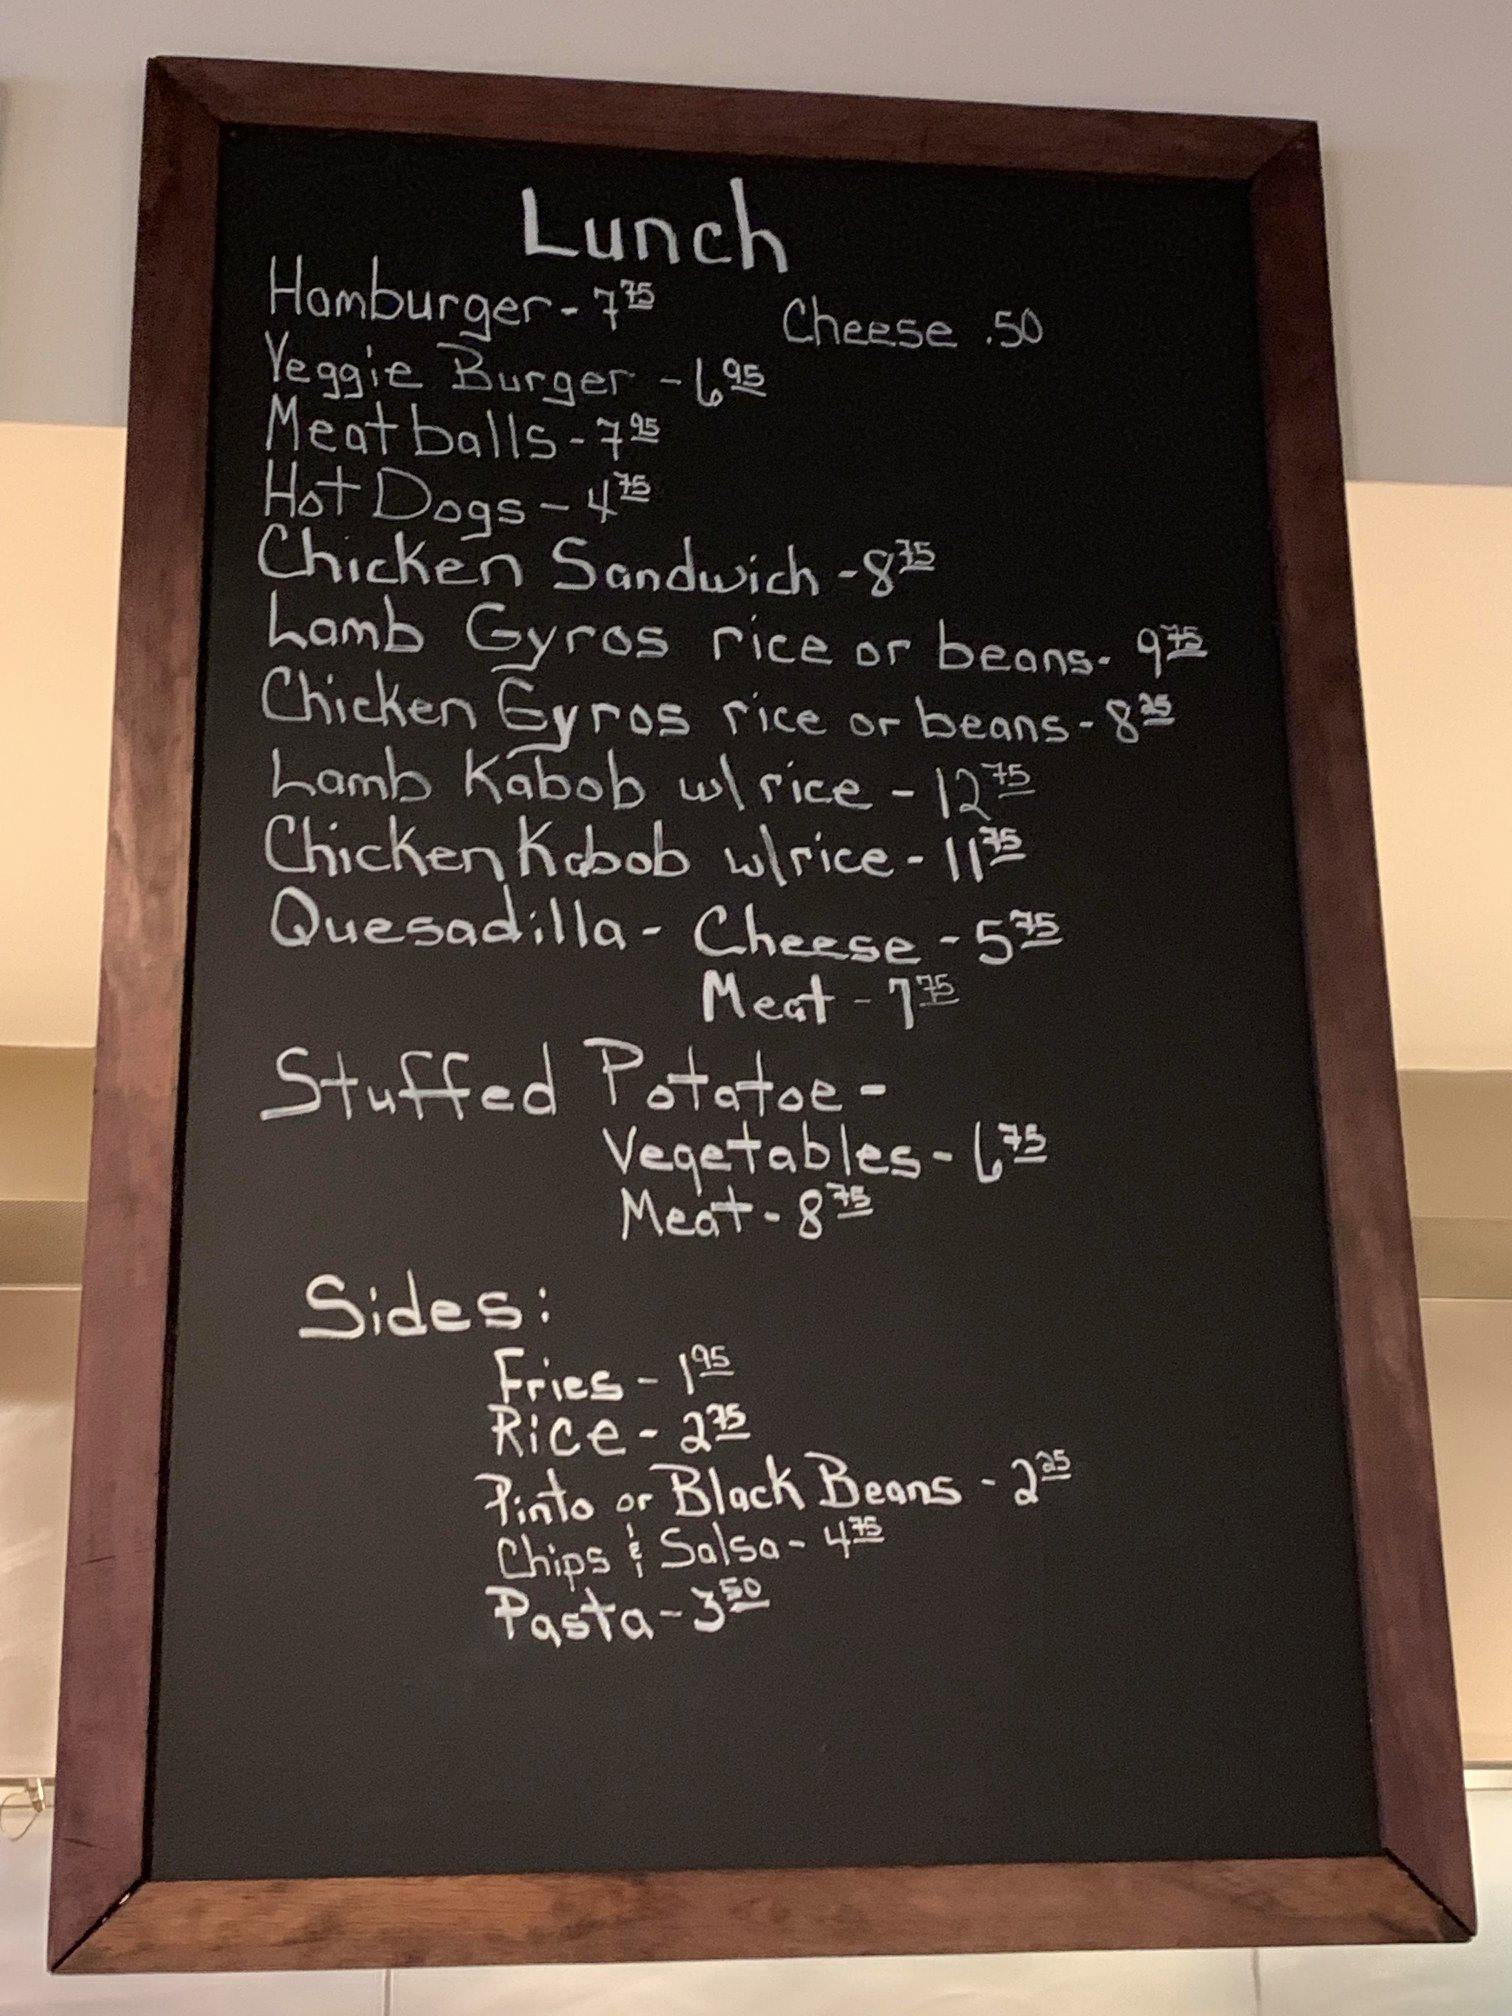 Lunch
Hamburger - 7 75 Cheese .50
Veggie Burger - 6 95
Meatballs - 7 95
Hot Dogs - 4 75
Chicken Sandwich - 8 75
Lamb Gyros rice or beans - 9 75
Chicken Gyros rice or beans - 8 25
Lamb Kabob w/ rice - 12 75
Chicken Kabob w/ rice - 11 75
Quesadilla - Cheese - 5 75
Meat - 7 75
Stuffed Potatoe -
Vegetables - 6 75
Meat - 8 75
Sides:
Fries - 1 95
Rice - 2 75
Pinto or Black Beans - 2 25
Chips & Salsa - 4 75
Pasta - 3 50